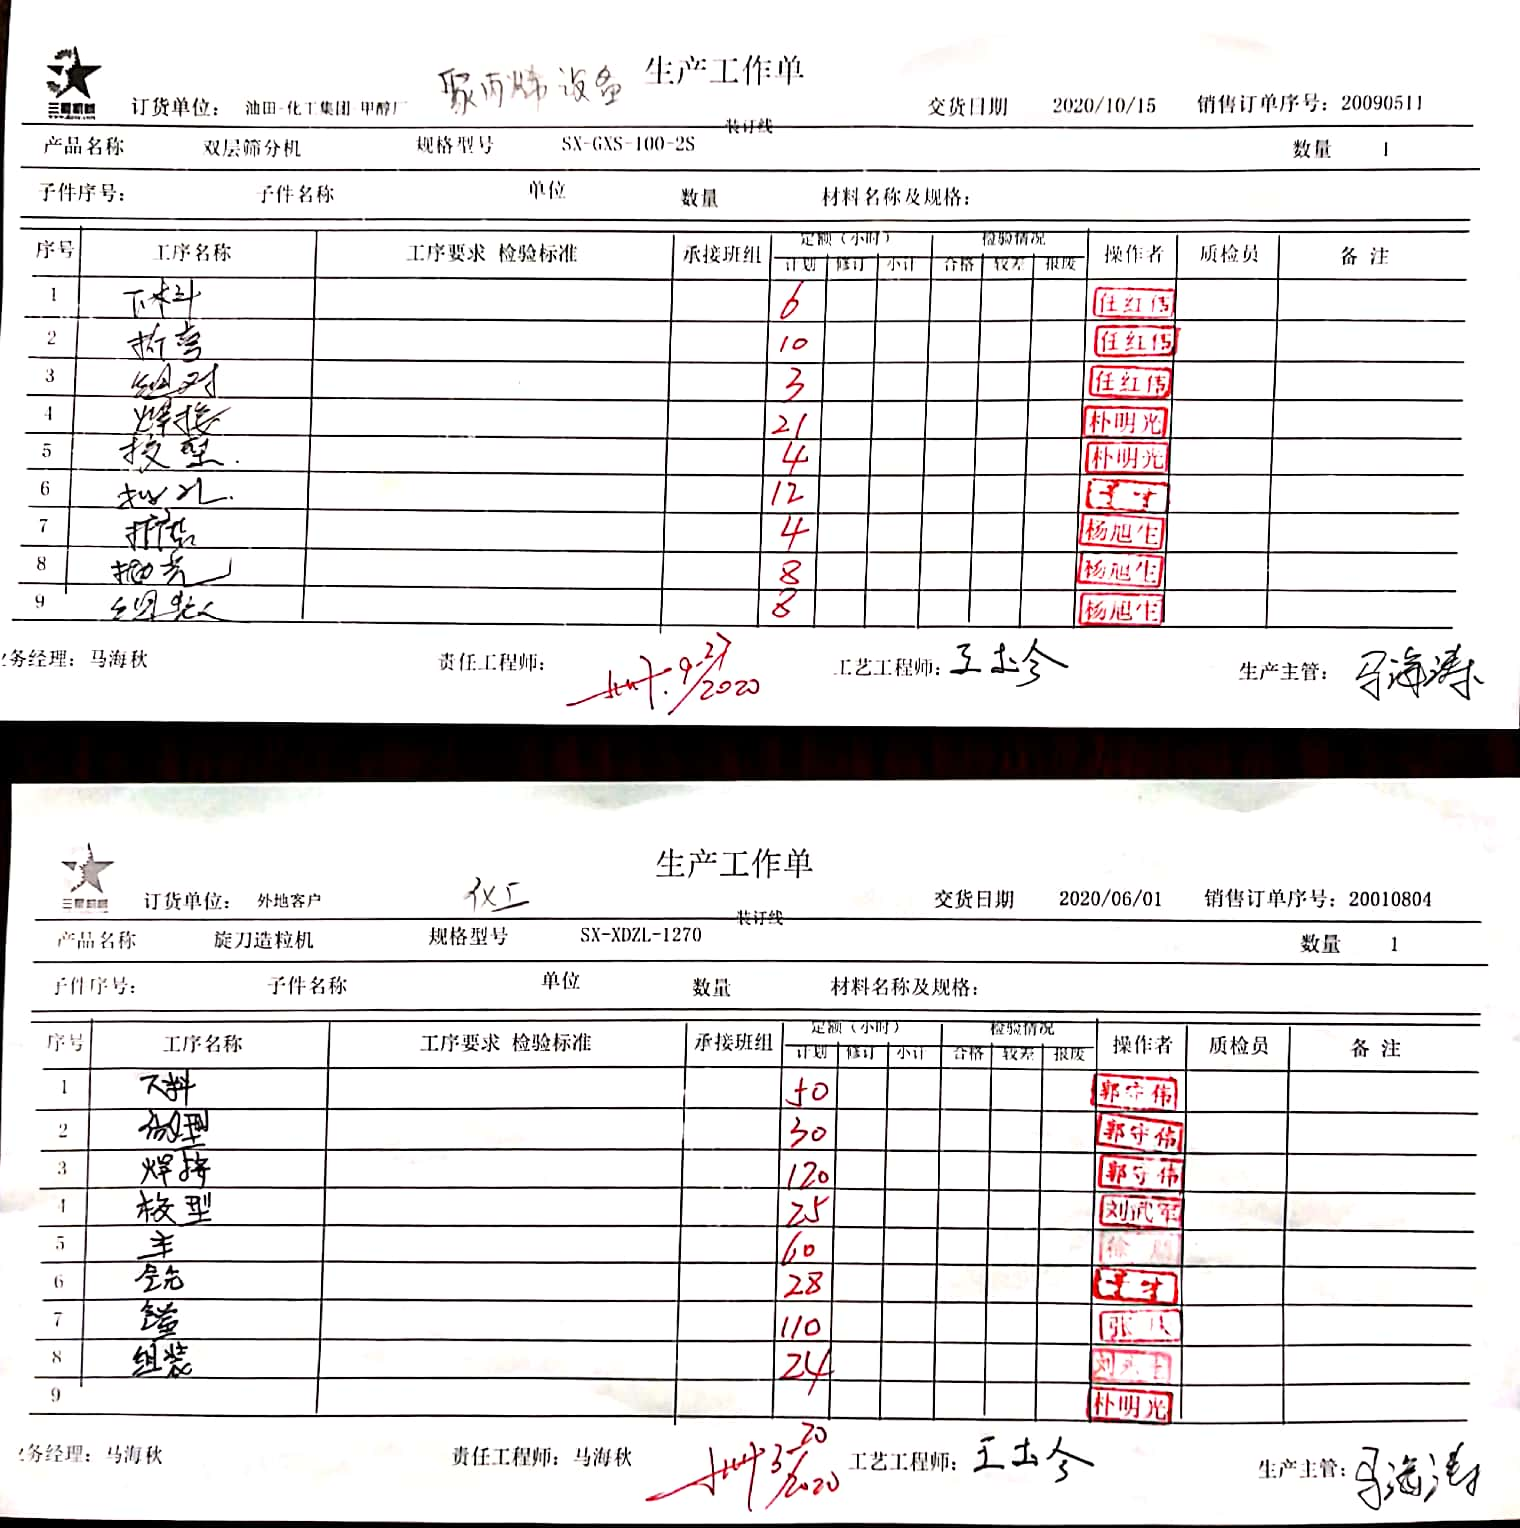 聚丙烯设备 生产工作单
订货单位： 油田-化工集团-甲醇厂 交货日期 2020/10/15 销售订单序号：20090511
装订线
产品名称 双层筛分机 规格型号 SX-GXS-100-2S 数量 1
子件序号： 子件名称 单位 数量 材料名称及规格：
序号 工序名称 工序要求 检验标准 承接班组 定额（小时） 检验情况 操作者 质检员 备 注
计划 修订 小计 合格 较差 报废
1 下料 6 任红伟
2 折弯 10 任红伟
3 组对 3 任红伟
4 焊接 21 朴明光
5 校型. 4 朴明光
6 12
7 4 杨旭生
8 抛光 8 杨旭生
9 组装 8 杨旭生
业务经理：马海秋 责任工程师： 9.27/2020 工艺工程师： 生产主管：马海涛
三星机械
生产工作单
订货单位： 外地客户 化工 交货日期 2020/06/01 销售订单序号：20010804
装订线
产品名称 旋刀造粒机 规格型号 SX-XDZL-1270 数量 1
子件序号： 子件名称 单位 数量 材料名称及规格：
序号 工序名称 工序要求 检验标准 承接班组 定额（小时） 检验情况 操作者 质检员 备 注
计划 修订 小计 合格 较差 报废
1 下料 50 郭守伟
2 成型 30 郭守伟
3 焊接 120 郭守伟
4 校型 25 刘武军
5 车 60 徐
6 28
7 110 张
8 组装 24 刘
9 朴明光
业务经理：马海秋 责任工程师：马海秋 3.20/2020 工艺工程师： 生产主管：马海涛